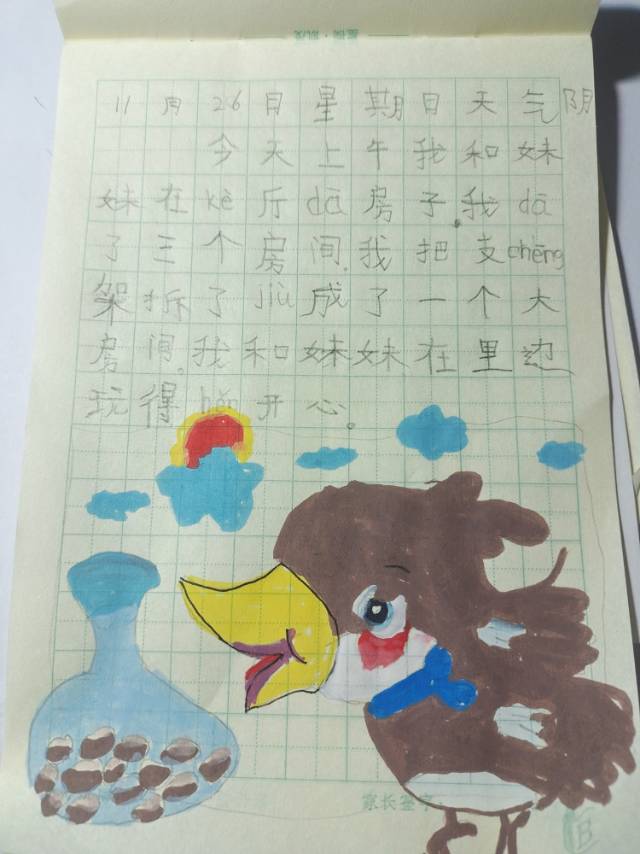 11月26日星期日天气阴
今天上午我和妹
妹在kè厅dā房子.我dā
了三个房间.我把支chēng
架拆了jiù成了一个大
房间.我和妹妹在里边
玩得hěn开心。
家长签字: